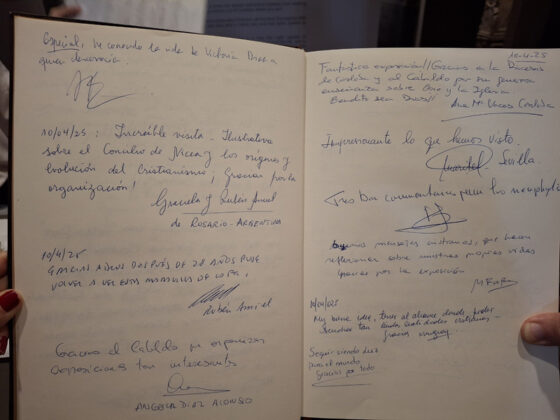 Especial, he conocido la vida de Victoria Díez a
quien desconocía.
10/04/25: Increíble visita - Ilustrativa
sobre el Concilio de Nicea y los orígenes y
evolución del Cristianismo ¡Gracias por la
organización!
Graciela y Rubén Amiel
de ROSARIO - ARGENTINA
10/4/25
GRACIAS A DIOS DESPUÉS DE 28 AÑOS PUDE
VOLVER A VER ESTA MARAVILLA DE LA FE.
RUBÉN Amiel
Gracias al Cabildo por organizar
exposiciones tan interesantes
ANGELA DÍAZ ALONSO
10-4-25
Fantástica exposición!! Gracias a la Diócesis
de Córdoba y al Cabildo por su generosa
enseñanza sobre Cristo y la Iglesia.
Bendito sea Dios!!
Ana M. Córdoba
Impresionante lo que hemos visto.
Sevilla.
Tres
mensajes cristianos, que hacen
reflexionar sobre nuestras propias vidas
Gracias por la exposición
10/04/025
My buena idea, tener al alcance donde poder
tan lindas
gracias
Seguir siendo luz
para el mundo
Gracias por todo